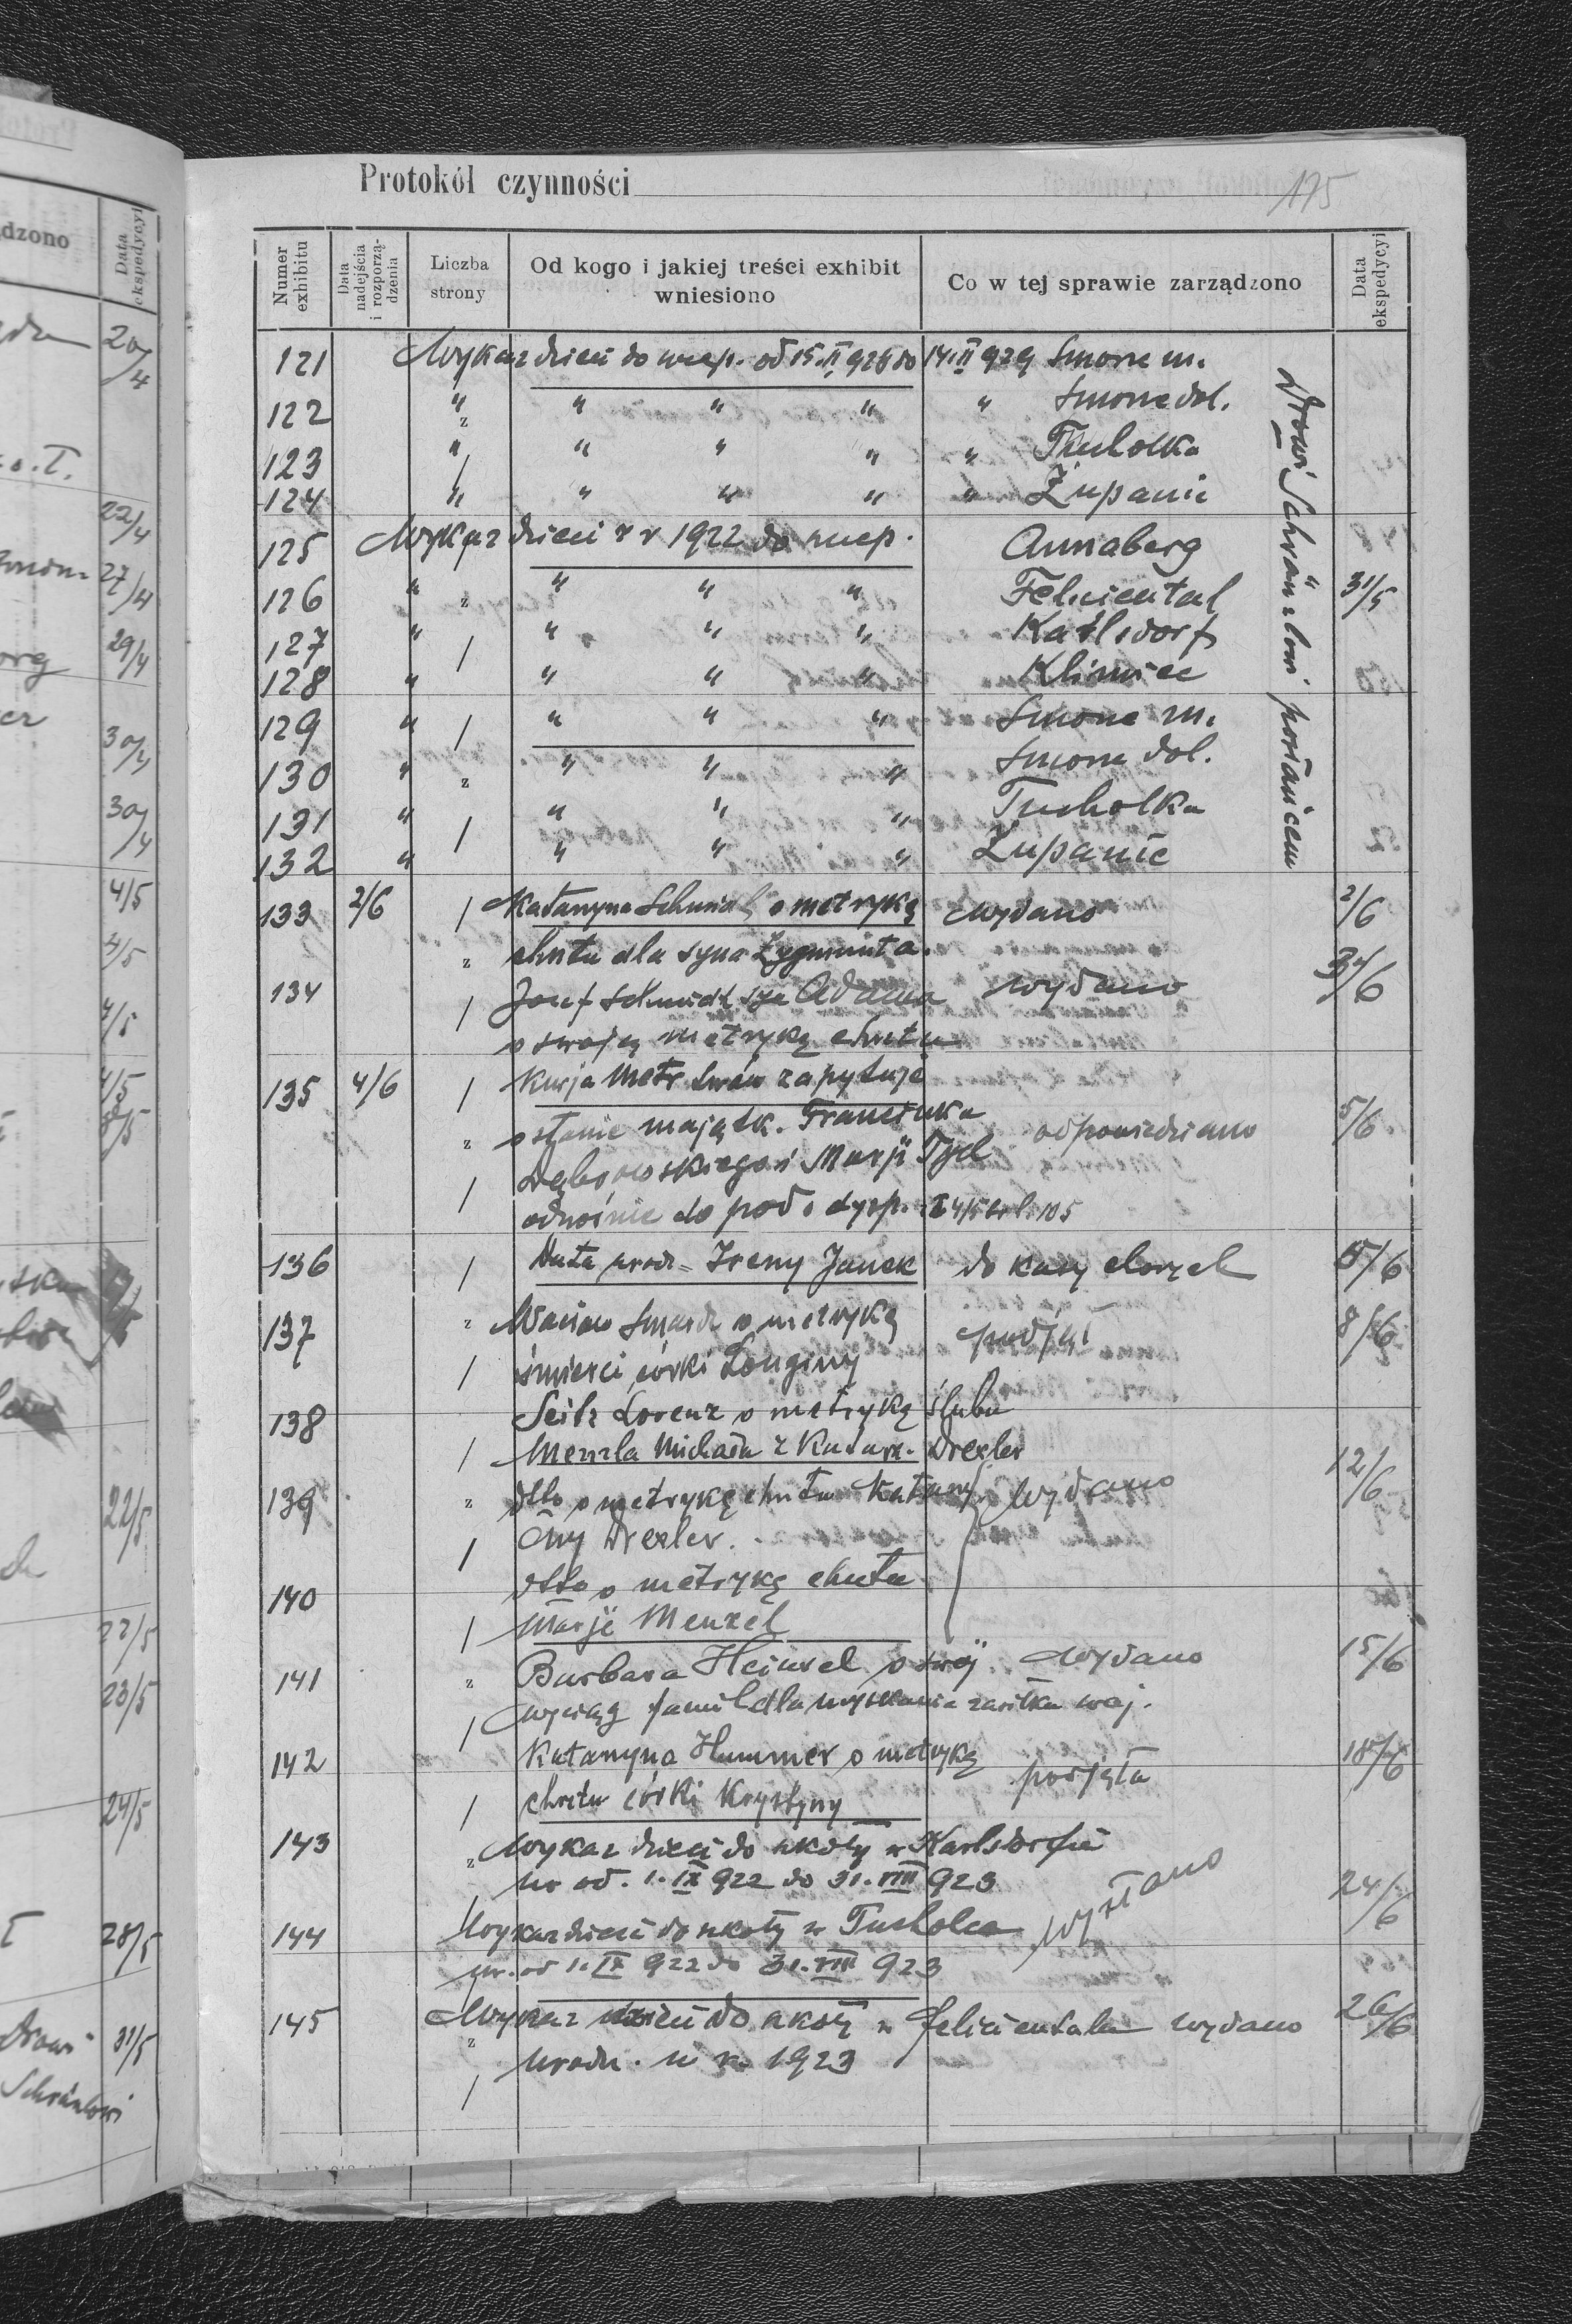 Protokół czynności
175
Numer exhibitu
Data nadejścia i rozporzą-dzenia
Liczba strony
Od kogo i jakiej treści exhibit wniesiono
Co w tej sprawie zarządzono
Data ekspedycyi
121 Wykaz dzieci do szczep. od 15.II 928 do 14.II 929 Smorze m.
122 " " " " " Smorze dol.
123 " " " " " Tucholka
124 " " " " " Żupanie
125 Wykaz dzieci z r 1922 do szczep. Annaberg
126 " " " " Feliciental 31/5
127 " " " " Karlsdorf
128 " " " " Klimiec
129 " " " " Smorze m.
130 " " " " Smorze dol.
131 " " " " Tucholka
132 " " " " Żupanie
Drowi Schränzlowi posłańcem
133 2/6 Katarzyna Schmidt o metrykę wydano 2/6
chrztu dla syna Zygmunta.
134 Josef Schmidt syn Adama wydano 3/6
o swoją metrykę chrztu
135 4/6 Kurja Metr Lwów zapytuje
o stanie majątk. Franciszka odpowiedziano 5/6
Dąbrowskiego i Marji Tyd
odnośnie do pod. o dysp. z 4/5 l. 105
136 Data urodz. Ireny Janek do kasy chorych 5/6
137 Wacław Smard o metrykę podjął 8/6
śmierci córki Longiny
138 Seitz Lorenz o metrykę ślubu
Menzla Michała z Katarz. Drexler
139 dtto o metrykę chrztu Katarzy wydano 12/6
ny Drexler.
140 dtto o metrykę chrztu
Marji Menzel
141 Barbara Heinzel o swój wydano 15/6
wyciąg famil dla uzyskania zasiłku woj.
142 Katarzyna Hummer o metrykę podjęła 18/6
chrztu córki Krystyny
143 Wykaz dzieci do szkoły w Karlsdorfie
ur od. 1.IX 922 do 31.VIII 923
144 Wykaz dzieci do szkoły w Tucholce wysłano 24/6
ur. od 1.IX 922 do 31.VIII 923
145 Wykaz dzieci do szkoły w Felicientalu wydano 26/6
urodz. w r. 1923
dzono
Data ekspedycyi
20/4
22/4
27/4
29/4
30/4
30/4
4/5
4/5
4/5
4/5
8/5
22/5
22/5
23/5
24/5
28/5
Drowi 31/5
Schränzlowi